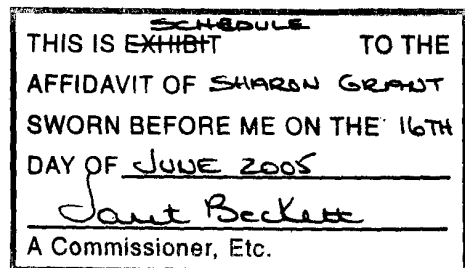 SCHEDULE
THIS IS EXHIBIT TO THE
AFFIDAVIT OF SHARON GRANT
SWORN BEFORE ME ON THE 16TH
DAY OF JUNE 2005
Janet Beckett
A Commissioner, Etc.